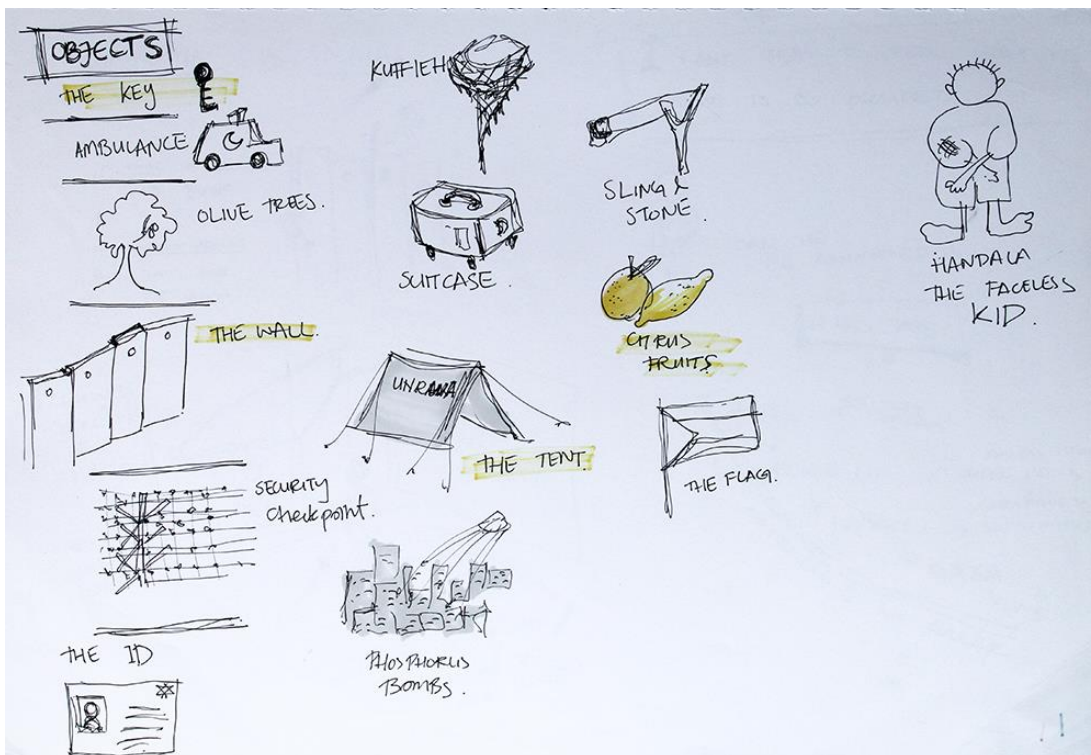 OBJECTS
THE KEY
AMBULANCE
OLIVE TREES.
THE WALL.
SECURITY
Checkpoint.
THE ID
KUFFIEH
SUITCASE.
UNRAWA
THE TENT.
PHOSPHORUS
BOMBS.
SLING &
STONE.
CITRUS
FRUITS
THE FLAG.
HANDALA
THE FACELESS
KID.